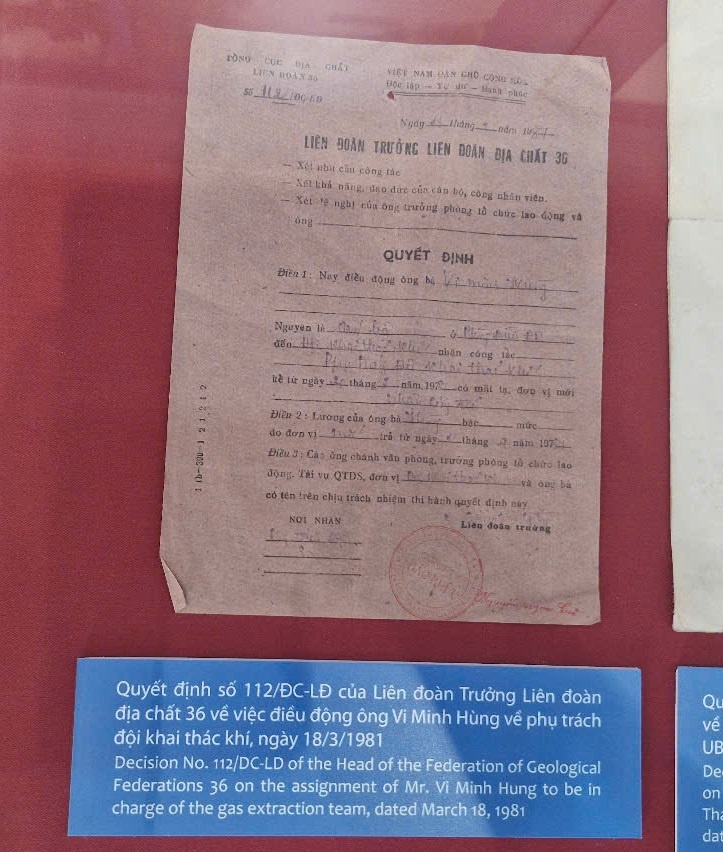 TỔNG CỤC ĐỊA CHẤT
LIÊN ĐOÀN 36
Số 112/ĐC-LĐ
VIỆT NAM DÂN CHỦ CỘNG HÒA
Độc lập - Tự do - Hạnh phúc
Ngày tháng năm
LIÊN ĐOÀN TRƯỞNG LIÊN ĐOÀN ĐỊA CHẤT 36
— Xét nhu cầu công tác
— Xét khả năng, đạo đức của cán bộ, công nhân viên.
— Xét đề nghị của ông trưởng phòng tổ chức lao động và
ông
QUYẾT ĐỊNH
Điều 1: Nay điều động ông bà Vi Minh Hùng
Nguyên là
đến Đội khai thác khí nhận công tác
Phụ trách đội khai thác khí
kể từ ngày tháng năm 198 có mặt tại đơn vị mới
Điều 2: Lương của ông bà Hùng bậc mức
do đơn vị trả từ ngày tháng năm 19
Điều 3: Các ông chánh văn phòng, trưởng phòng tổ chức lao
động. Tài vụ QTĐS, đơn vị và ông bà
có tên trên chịu trách nhiệm thi hành quyết định này
NƠI NHẬN
Liên đoàn trưởng
Quyết định số 112/ĐC-LĐ của Liên đoàn Trưởng Liên đoàn
địa chất 36 về việc điều động ông Vi Minh Hùng về phụ trách
đội khai thác khí, ngày 18/3/1981
Decision No. 112/DC-LD of the Head of the Federation of Geological
Federations 36 on the assignment of Mr. Vi Minh Hung to be in
charge of the gas extraction team, dated March 18, 1981
Qu
về
UB
De
on
Tha
dat